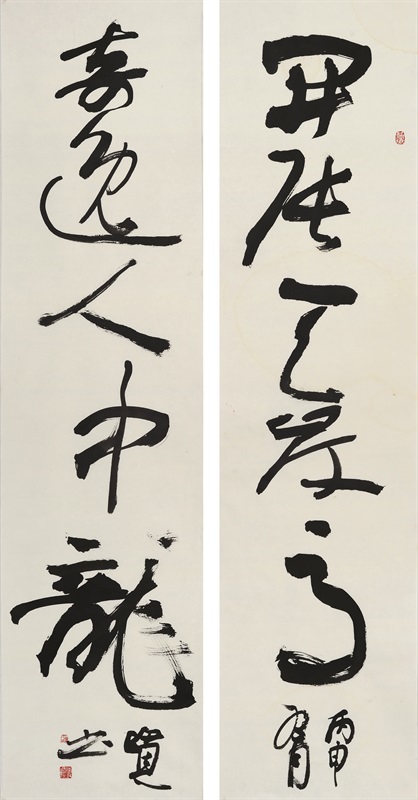 開張天岸馬
丙申
奇逸人中龍